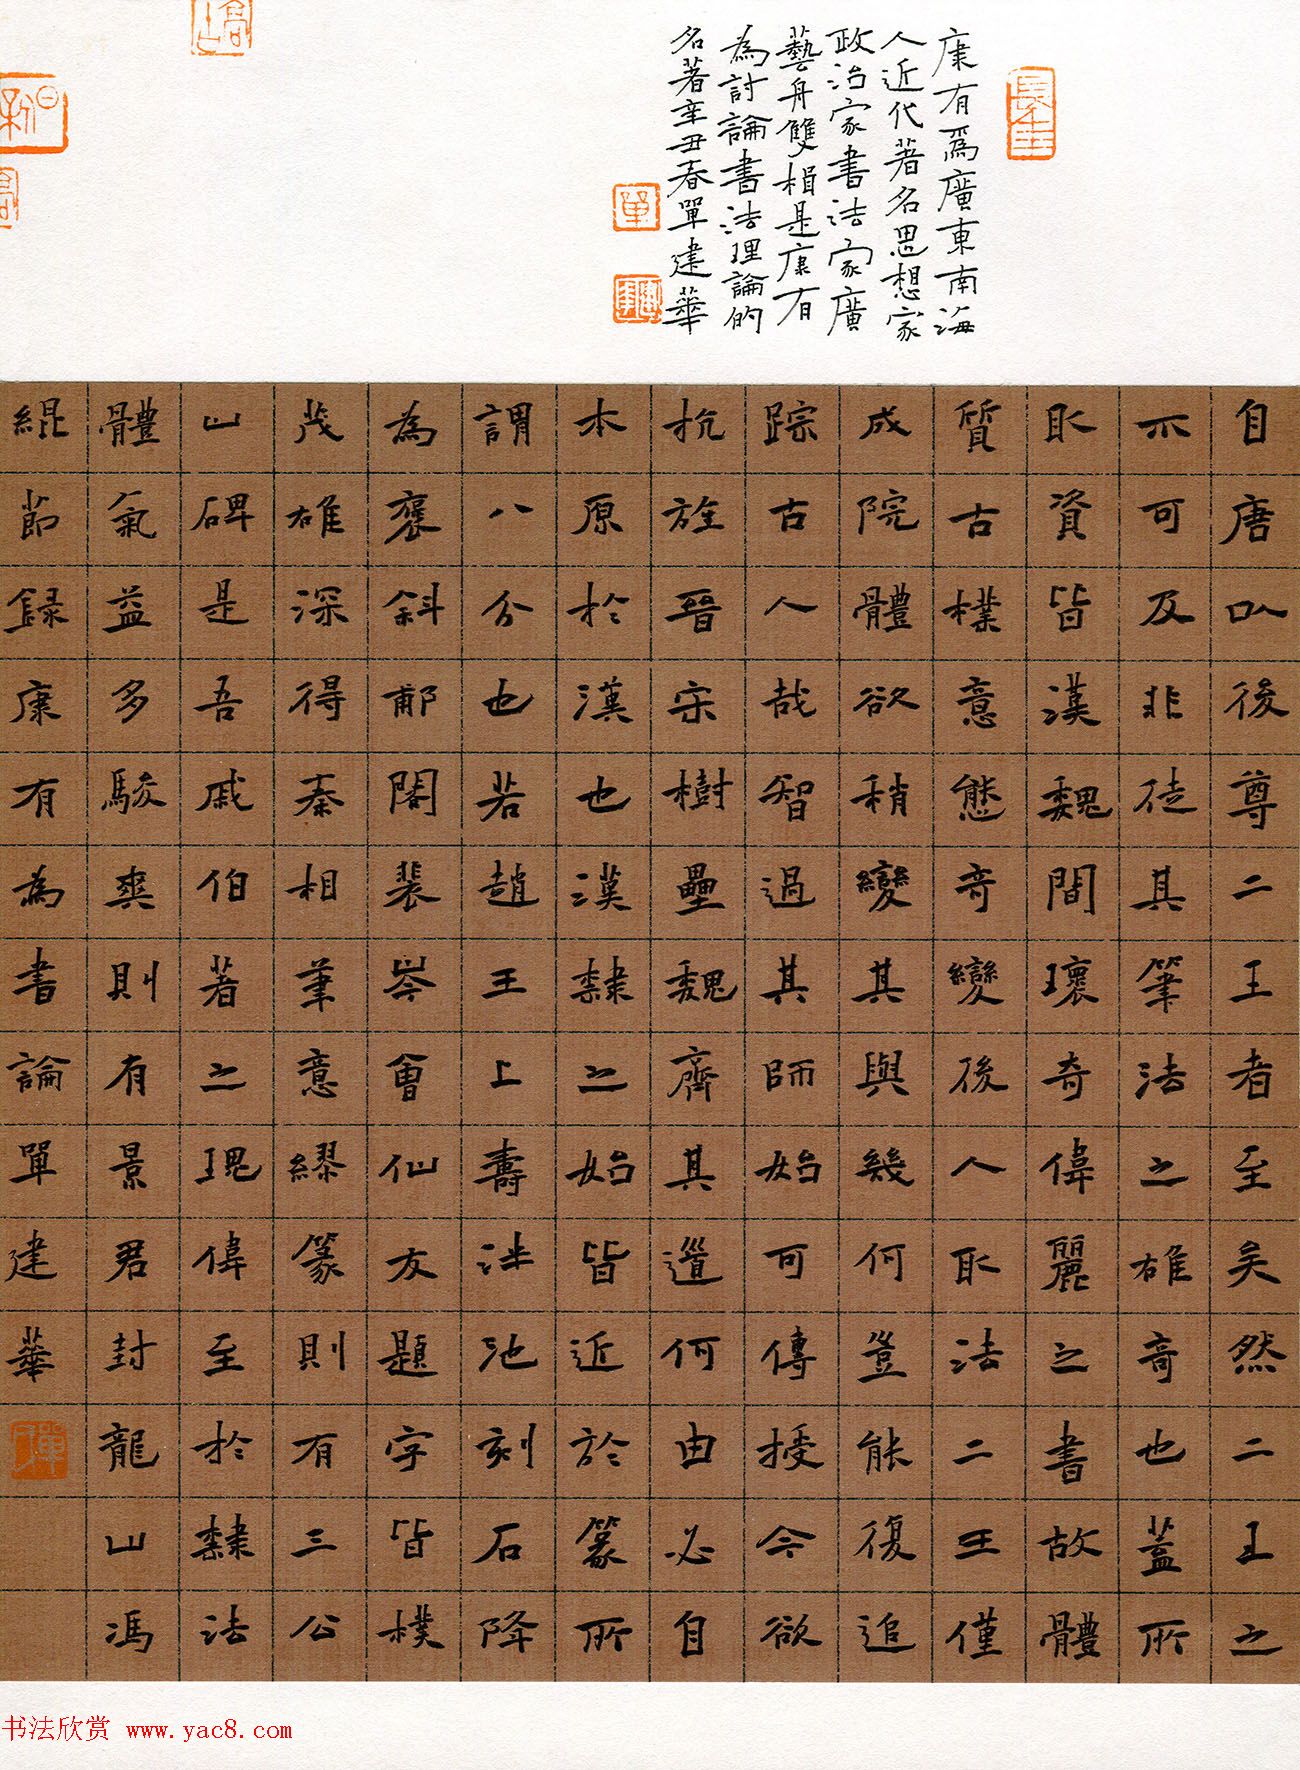 康有爲廣東南海
人近代著名思想家
政治家書法家廣
藝舟雙楫是康有
為討論書法理論的
名著辛丑春單建華
自唐以後尊二王者至矣然二王之
不可及非徒其筆法之雄奇也蓋所
取資皆漢魏間瓌奇偉麗之書故體
質古樸意態奇變後人取法二王僅
成院體欲稍變其與幾何豈能復追
踪古人哉智過其師始可傳授今欲
抗旌晉宋樹壘魏齊其道何由必自
本原於漢也漢隸之始皆近於篆所
謂八分也若趙王上壽泮池刻石降
為褒斜郙閣裴岑會仙友題字皆樸
茂雄深得秦相筆意繆篆則有三公
山碑是吾戚伯著之瑰偉至於隸法
體氣益多駿爽則有景君封龍山馮
緄節録康有為書論單建華
單
书法欣赏 www.yac8.com